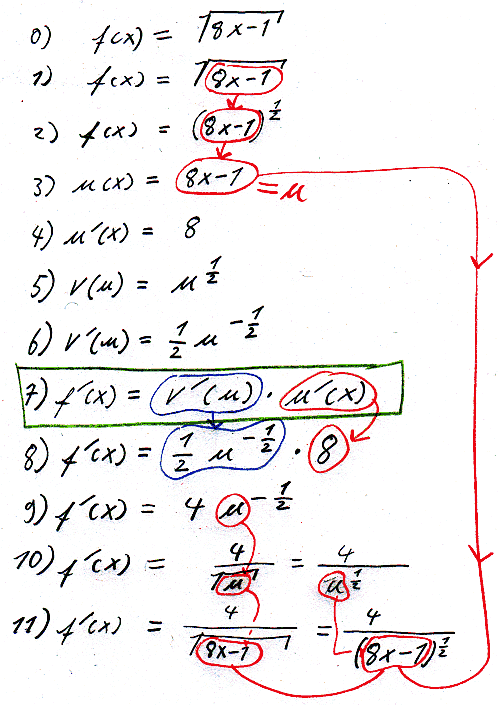 0) f(x) = √(8x-1)
1) f(x) = √(8x-1)
2) f(x) = (8x-1)^(1/2)
3) u(x) = 8x-1 = u
4) u'(x) = 8
5) v(u) = u^(1/2)
6) v'(u) = 1/2 u^(-1/2)
7) f'(x) = v'(u) · u'(x)
8) f'(x) = 1/2 u^(-1/2) · 8
9) f'(x) = 4 u^(-1/2)
10) f'(x) = 4/√u = 4/u^(1/2)
11) f'(x) = 4/√(8x-1) = 4/(8x-1)^(1/2)